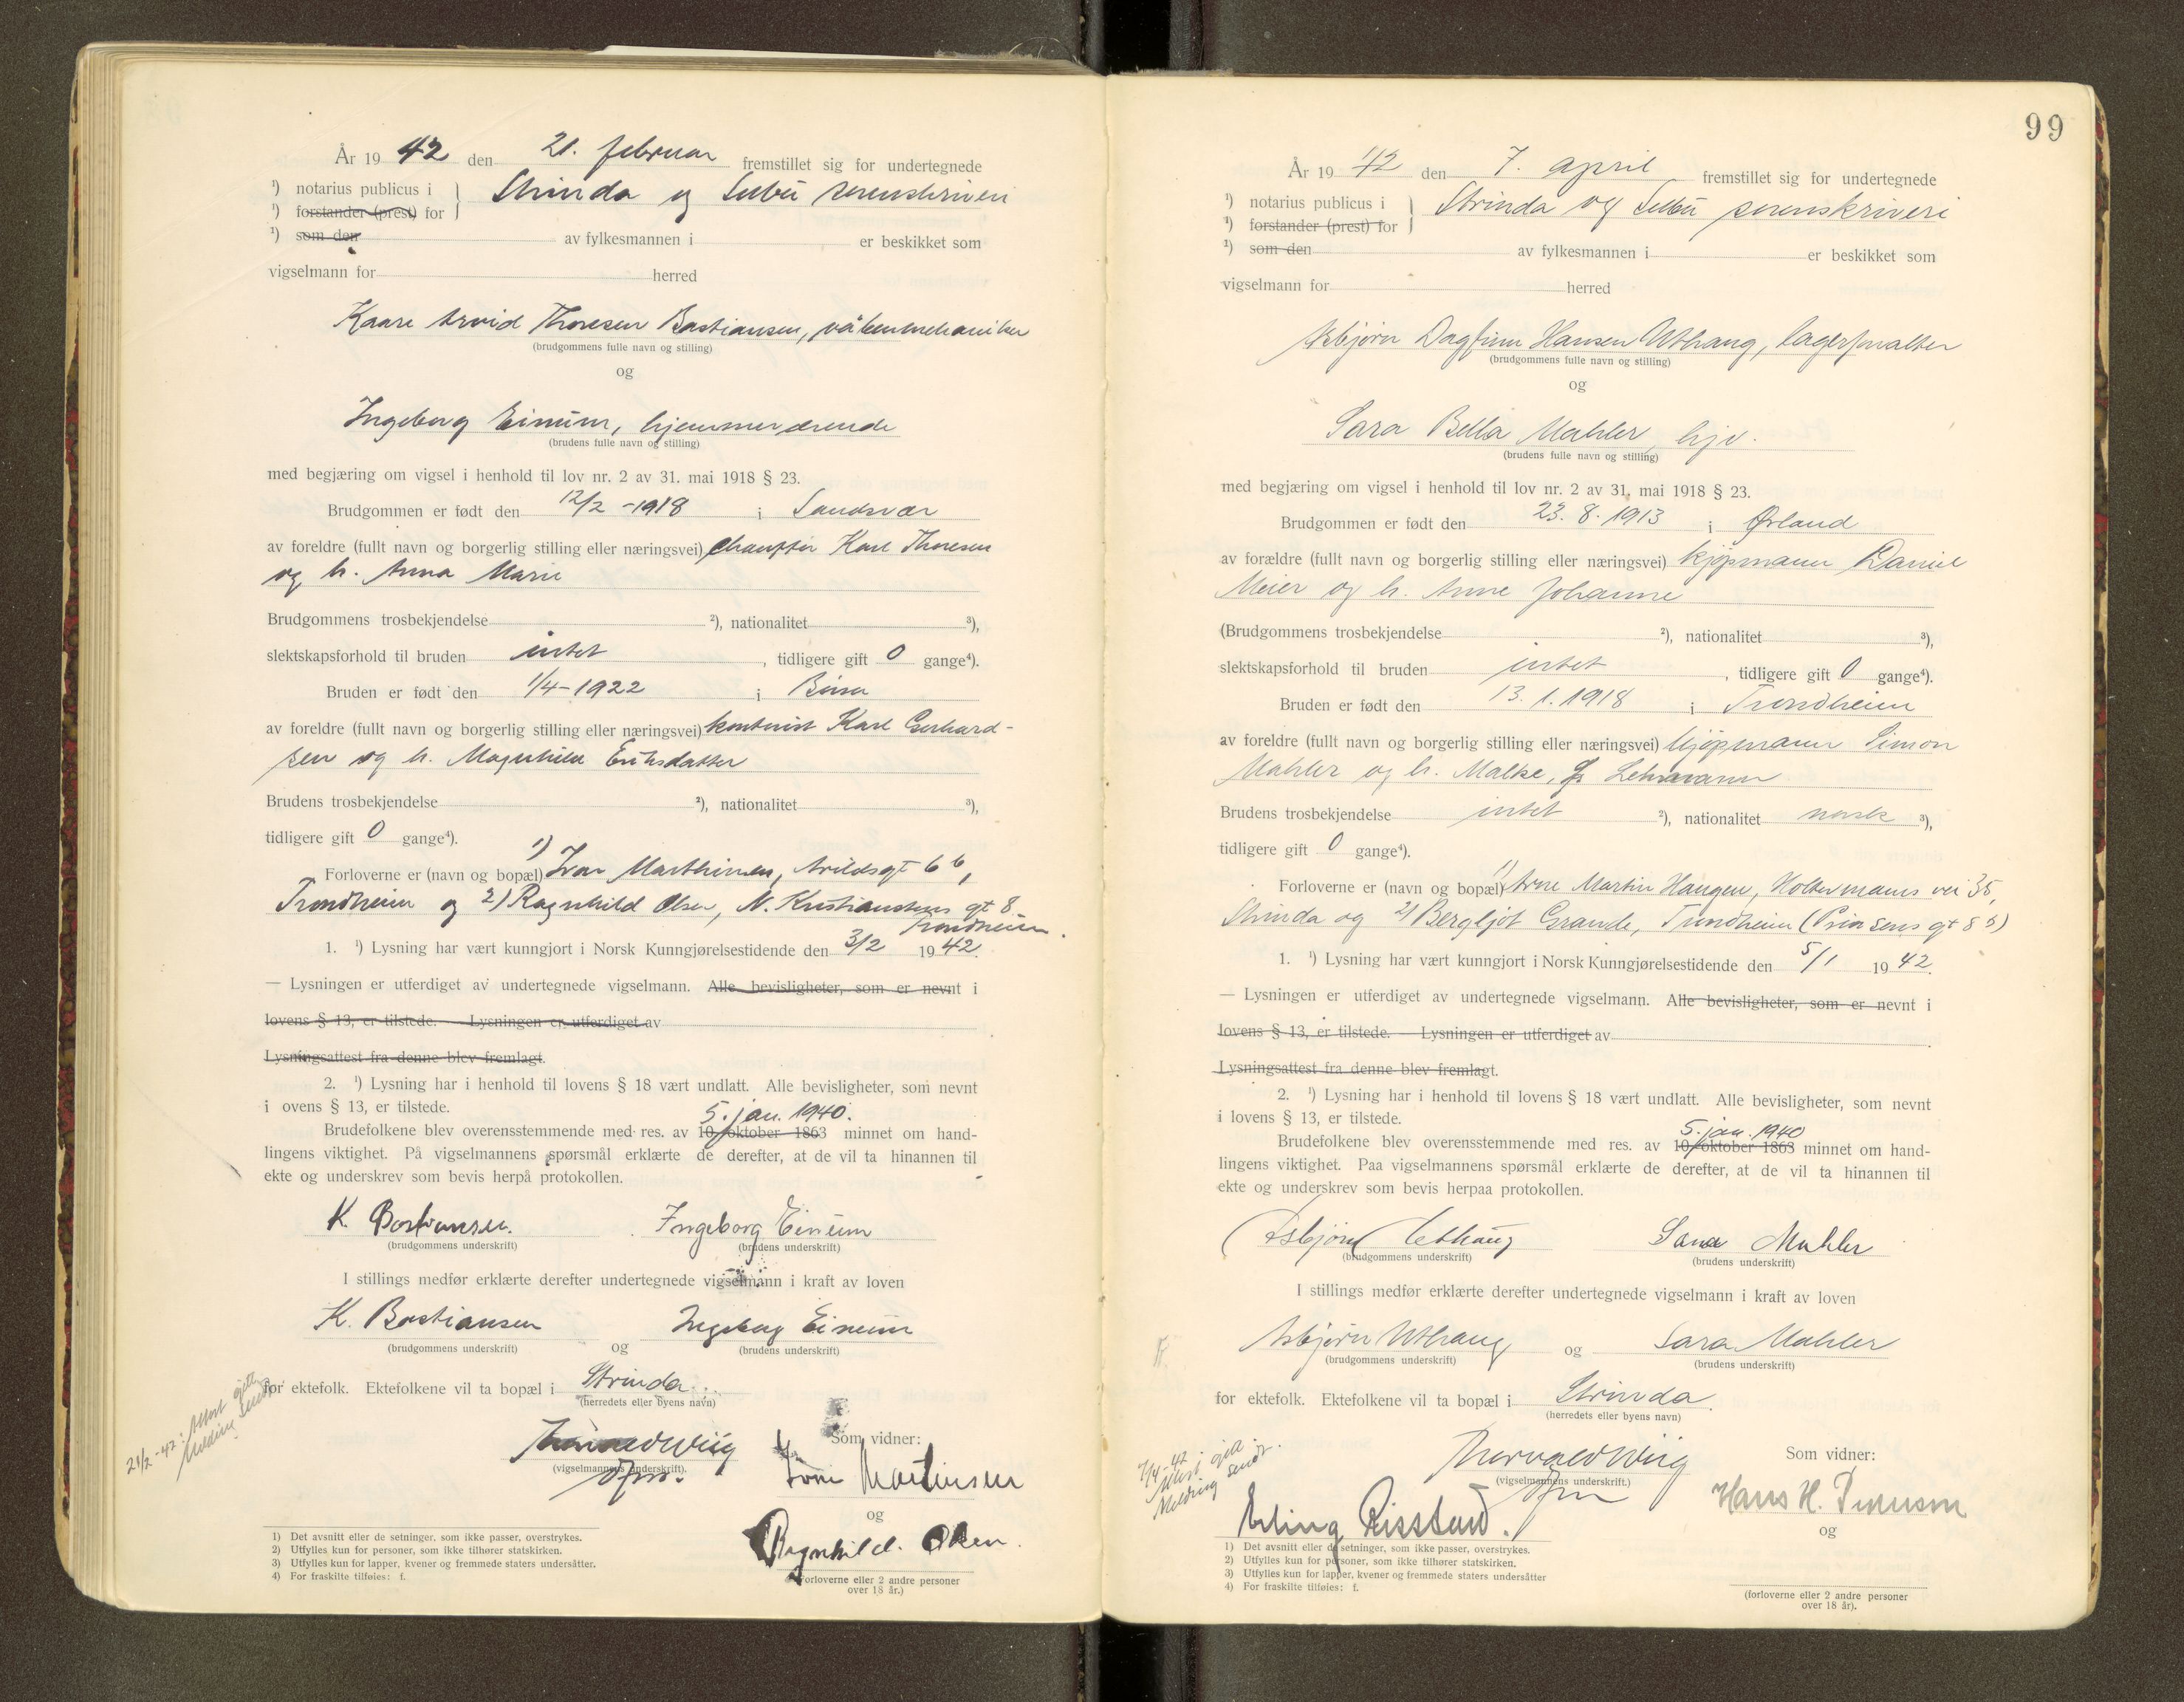 År 19 42 den 21. februar fremstillet sig for undertegnede
¹) notarius publicus i
¹) forstander (prest) for
Strinda og Selbu sorenskriveri
¹) som den av fylkesmannen i er beskikket som
vigselmann for herred
Kaare Arvid Thoresen Bastiansen, våbenmekaniker
(brudgommens fulle navn og stilling)
og
Ingeborg Einum, hjemmeværende
(brudens fulle navn og stilling)
med begjæring om vigsel i henhold til lov nr. 2 av 31. mai 1918 § 23.
Brudgommen er født den 12/2 -1918 i Sandsvær
av foreldre (fullt navn og borgerlig stilling eller næringsvei) chauffør Karl Thoresen
og h. Anna Marie
Brudgommens trosbekjendelse ²), nationalitet ³),
slektskapsforhold til bruden intet, tidligere gift 0 gange⁴).
Bruden er født den 1/4-1922 i Börsa
av foreldre (fullt navn og borgerlig stilling eller næringsvei) kontorist Karl Gerhard-
sen og h. Magnhild Eriksdatter
Brudens trosbekjendelse ²), nationalitet ³),
tidligere gift 0 gange⁴).
Forloverne er (navn og bopæl) 1) Ivar Marthinsen, Arildsgt 6 b,
Trondheim og 2) Ragnhild Olsen, N. Kristiansens gt 8
Trondheim.
1. ¹) Lysning har vært kunngjort i Norsk Kunngjørelsestidende den 3/2 1942.
— Lysningen er utferdiget av undertegnede vigselmann. Alle bevisligheter, som er nevnt i
lovens § 13, er tilstede. — Lysningen er utferdiget av
Lysningsattest fra denne blev fremlagt.
2. ¹) Lysning har i henhold til lovens § 18 vært undlatt. Alle bevisligheter, som nevnt
i ovens § 13, er tilstede.
5. jan. 1940.
Brudefolkene blev overensstemmende med res. av 10. oktober 1863 minnet om hand-
lingens viktighet. På vigselmannens spørsmål erklærte de derefter, at de vil ta hinannen til
ekte og underskrev som bevis herpå protokollen.
K. Bastiansen. Ingeborg Einum
(brudgommens underskrift) (brudens underskrift)
I stillings medfør erklærte derefter undertegnede vigselmann i kraft av loven
K. Bastiansen og Ingeborg Einum
(brudgommens underskrift) (brudens underskrift)
for ektefolk. Ektefolkene vil ta bopæl i Strinda
(herredets eller byens navn)
21/2-42: Attest gitt
Melding sendt.
Thorvald Wiig
(vigselmannens underskrift).
Som vidner:
Ivar Martinsen
og
Ragnhild. Olsen.
(forloverne eller 2 andre personer
over 18 år.)
1) Det avsnitt eller de setninger, som ikke passer, overstrykes.
2) Utfylles kun for personer, som ikke tilhører statskirken.
3) Utfylles kun for lapper, kvener og fremmede staters undersåtter.
4) For fraskilte tilføies: f.
99
År 19 42 den 7. april fremstillet sig for undertegnede
¹) notarius publicus i
¹) forstander (prest) for
Strinda og Selbu sorenskriveri
²) som den av fylkesmannen i er beskikket som
vigselmann for herred
Asbjørn Dagfinn Hansen Uthaug, lagerforvalter
(brudgommens fulle navn og stilling)
og
Sara Bella Mahler, hjv.
(brudens fulle navn og stilling)
med begjæring om vigsel i henhold til lov nr. 2 av 31. mai 1918 § 23.
Brudgommen er født den 23. 8. 1913 i Ørland
av forældre (fullt navn og borgerlig stilling eller næringsvei) kjøpmann Daniel
Meier og h. Anne Johanne
(Brudgommens trosbekjendelse ²), nationalitet ³),
slektskapsforhold til bruden intet, tidligere gift 0 gange⁴).
Bruden er født den 13. 1. 1918 i Trondheim
av foreldre (fullt navn og borgerlig stilling eller næringsvei) kjøpmann Simon
Mahler og h. Malke, f. Lehmann
Brudens trosbekjendelse intet ²), nationalitet norsk ³),
tidligere gift 0 gange⁴).
Forloverne er (navn og bopæl) 1) Arne Martin Haugen, Holtermanns vei 35,
Strinda og 2) Bergljot Grande, Trondheim (Prinsens gt 8 b)
1. ¹) Lysning har vært kunngjort i Norsk Kunngjørelsestidende den 5/1 1942.
— Lysningen er utferdiget av undertegnede vigselmann. Alle bevisligheter, som er nevnt i
lovens § 13, er tilstede. — Lysningen er utferdiget av
Lysningsattest fra denne blev fremlagt.
2. ¹) Lysning har i henhold til lovens § 18 vært undlatt. Alle bevisligheter, som nevnt
i lovens § 13, er tilstede.
5. jan. 1940
Brudefolkene blev overensstemmende med res. av 10. oktober 1863 minnet om hand-
lingens viktighet. Paa vigselmannens spørsmål erklærte de derefter, at de vil ta hinannen til
ekte og underskrev som bevis herpaa protokollen.
Asbjørn Uthaug Sara Mahler
(brudgommens underskrift) (brudens underskrift)
I stillings medfør erklærte derefter undertegnede vigselmann i kraft av loven
Asbjørn Uthaug og Sara Mahler
(brudgommens underskrift) (brudens underskrift)
for ektefolk. Ektefolkene vil ta bopæl i Strinda.
(herredets eller byens navn)
7/4-42
Attest gitt
Melding sendt.
Thorvald Wiig
(vigselmannens underskrift.)
Som vidner:
Hans H.
og
Erling Risstad.
(forloverne eller 2 andre personer
over 18 år).
1) Det avsnitt eller de setninger, som ikke passer, overstrykes.
2) Utfylles kun for personer, som ikke tilhører statskirken.
3) Utfylles kun for lapper, kvener og fremmede staters undersåtter
4) For fraskilte tilføies: f.